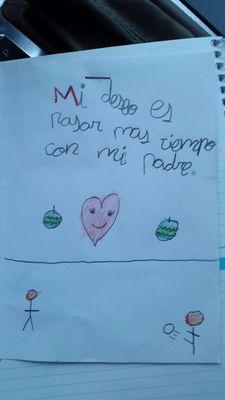 Mi deseo es
pasar mas tiempo
con mi padre.